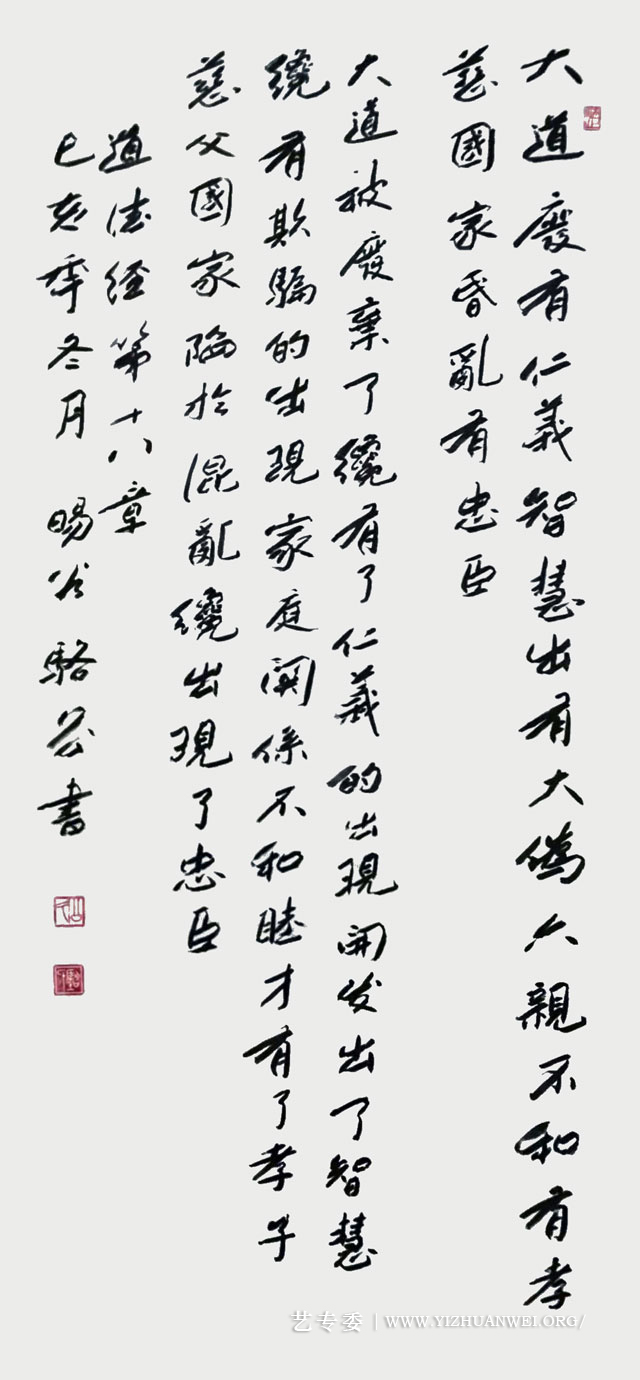 大道廢有仁義智慧出有大偽六親不和有孝
慈國家昏亂有忠臣
大道被廢棄了纔有了仁義的出現開发出了智慧
纔有欺騙的出現家庭関係不和睦才有了孝子
慈父國家陷於混亂纔出現了忠臣
道德经第十八章
己亥年冬月 暘谷駱公書
艺专委 | WWW.YIZHUANWEI.ORG/